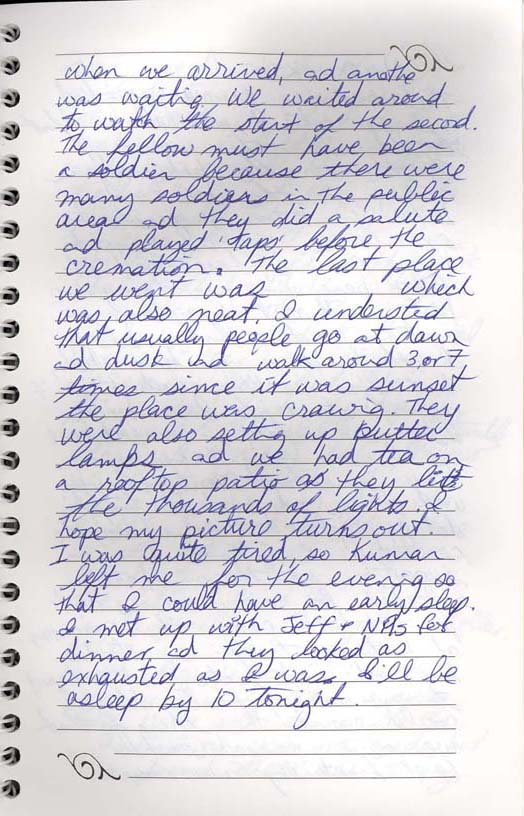 when we arrived, ad anothe
was waitig. We waited aroud
to watch the start of the secod.
The fellow must have been
a soldier because there were
many soldiers in the public
area ad they did a salute
ad played 'taps' before the
cremation. The last place
we went was which
was also neat. I understod
that usually people go at dawn
ad dusk ad walk around 3 or 7
times since it was sunset
the place was crawig. They
were also settig up butter
lamps ad we had tea on
a rooftop patio as they lit
the thousands of lights. I
hope my picture turns out.
I was quite tired, so Kumar
left me for the evening so
that I could have an early sleep.
I met up with Jeff + for
dinner ad they looked as
exhausted as I was. I'll be
asleep by 10 tonight.